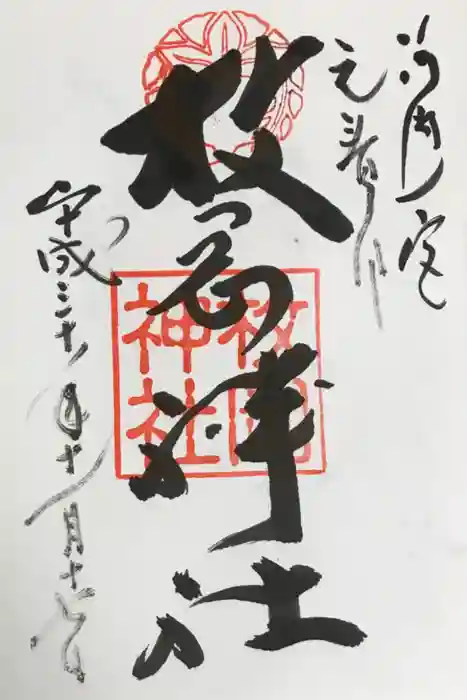 河内一宮
元春日
枚岡神社
枚岡
神社
平成三十年十月十七日